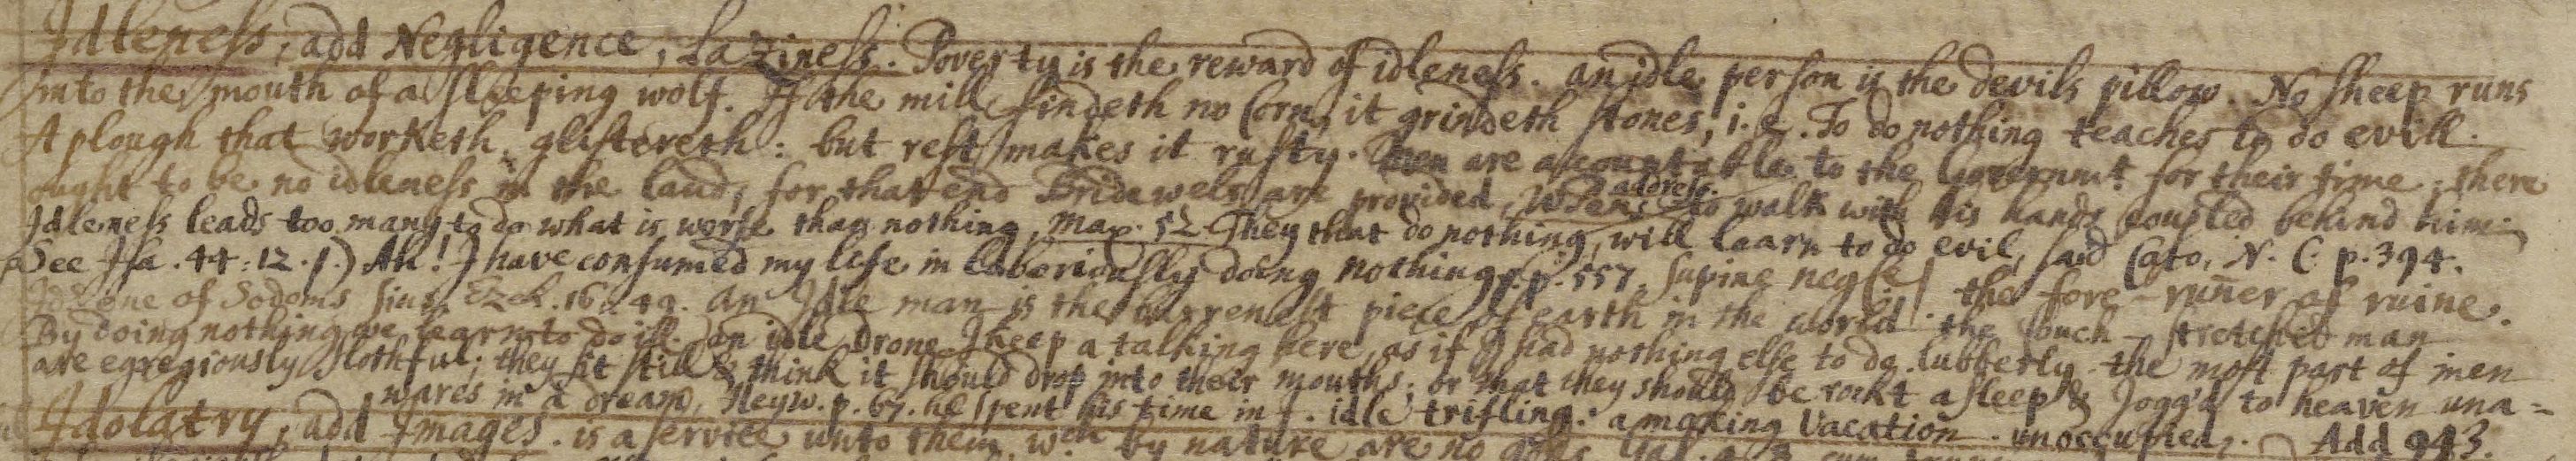 Idleness, add Negligence, Laziness. Poverty is the reward of idleness. an idle person is the devils pillow. No sheep runs
into the mouth of a sleeping wolf. If the mill findeth no Corn, it grindeth stones, i.e. To do nothing teaches to do evill.
A plough that worketh, glistereth: but rest makes it rusty. Men are acountable to the Governmt for their time, there
ought to be no idleness in the land, for that end Bridewels are provided, address to walk with his hands coupled behind him.
Idleness leads too many to do what is worse than nothing, Max. 52 They that do nothing, will learn to do evil, said Cato, N. C. p. 394.
See Isa. 44:12. p.) Ah! I have consumed my life in laboriously doing nothing, p. 557, supine the fore-ruñer of ruine.
Idl. one of Sodoms sins, Ezek. 16. 49. an Idle man is the barrenest piece of earth in the world. the Couch-stretched man
By doing nothing we learn to do ill. an idle drone. I keep a talking here, as if I had nothing else to do. lubberly. the most part of men
are egregiously slothful; they sit still & think it should drop into their mouths; or that they should be rockt asleep & Jogg'd to heaven una=
wares in a dream, Heyw. p. 67. he spent his time in idle trifling: a making Vacation. unoccupied. Add 943.
Idolatry, add Images. is a service unto them, wch by nature are no gods